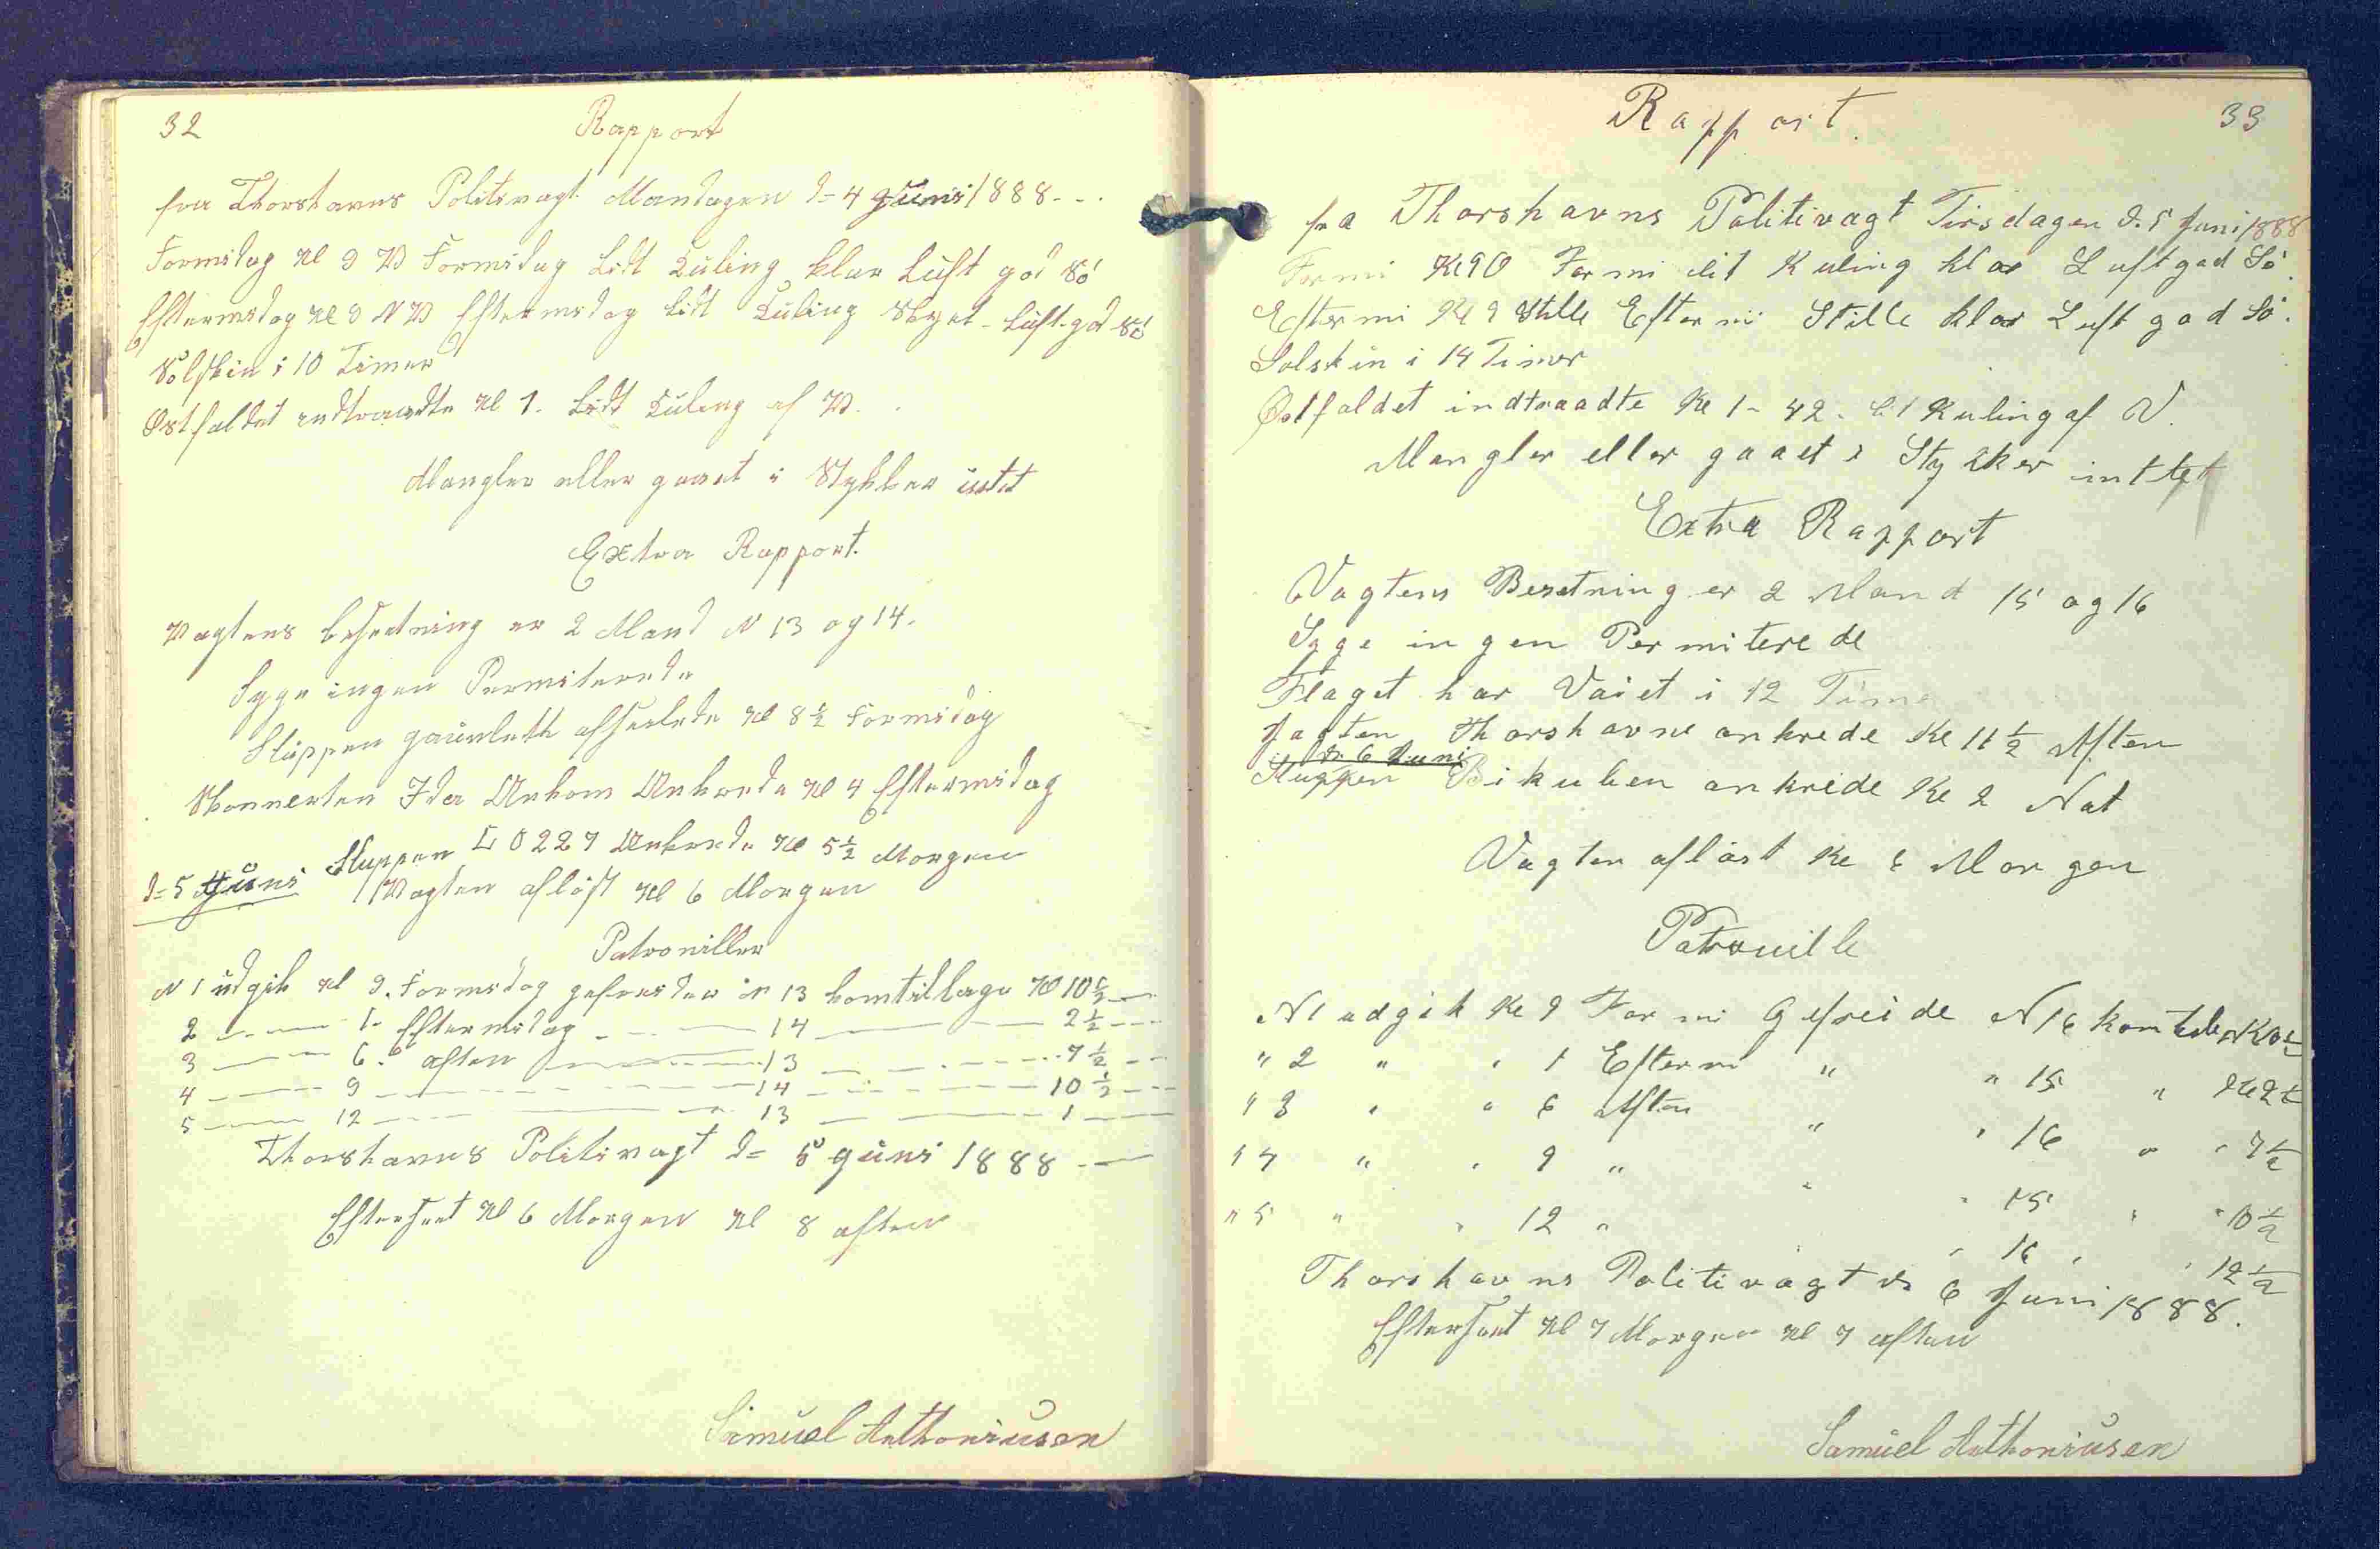 32
Rapport
fra Thorshavns Politivagt Mandagen d= 4 Juni 1888
Formidag Kl 9 V Formidag Lidt Kuling klar Luft god Sö
Eftermidag Kl 9 NV Eftermidag Lidt Kuling Skyet Luft god Sö
Solskin i 10 Timer
Østfaldet indtraadte Kl 1. Lidt Kuling af V.
Mangler eller gaaet i Stykker intet
Extra Rapport.
Vagtens besetning er 2 Mand N 13 og 14.
Syge ingen Permiterede
Sluppen afseilede Kl 8½ Formidag
Skonnerten Ida Ankom Ankrede Kl 4 Eftermidag
d= 5 Juni Sluppen 227 Ankrede Kl 5½ Morgen
Vagten aflöst Kl 6 Morgen
Patrouiller
N 1 udgik Kl 9. Formidag gefreider N 13 kom tilbage Kl 10½
2 — 1. Eftermidag — 14 — 2½
3 — 6. aften — 13 — 7½
4 — 9 — 14 — 10½
5 — 12 — 13 — 1
Thorshavns Politivagt d= 5 Juni 1888
Efterseet Kl 6 Morgen Kl 8 aften
Samuel Anthoniusen
33
Rapport.
fra Thorshavns Politivagt Tirsdagen d. 5 Juni 1888
Formi Kl 9 O Formi lit Kuling klar Luft god Sö.
Eftermi Kl 9 Stille Eftermi Stille klar Luft god Sö.
Solskin i 14 Timer
Østfaldet indtraadte Kl 1-42. Lit Kuling af V.
Mangler eller gaaet i Stykker inttet
Extra Rapport
Vagtens Besetning er 2 Mand 15 og 16
Syge ingen Permiterede
Flaget har Vaiet i 12 Time
Jagten Thorshavne ankrede Kl 11½ Aften
d. 6 Juni
Sluppen Bikuben ankrede Kl 2 Nat
Vagten aflöst Kl 6 Morgen
Patrouille
N 1 udgik Kl 9 Formi Gefreide N 16 kom
" 2 " " 1 Efterm " " 15 " Kl 2½
" 3 " " 6 Aften " " 16 " " 7½
" 4 " " 9 " " " 15 " " 10½
" 5 " " 12 " " 16 " " 12½
Thorshavns Politivagt d. 6 Juni 1888.
Efterseet Kl 7 Morgen Kl 7 aften
Samuel Anthoniusen